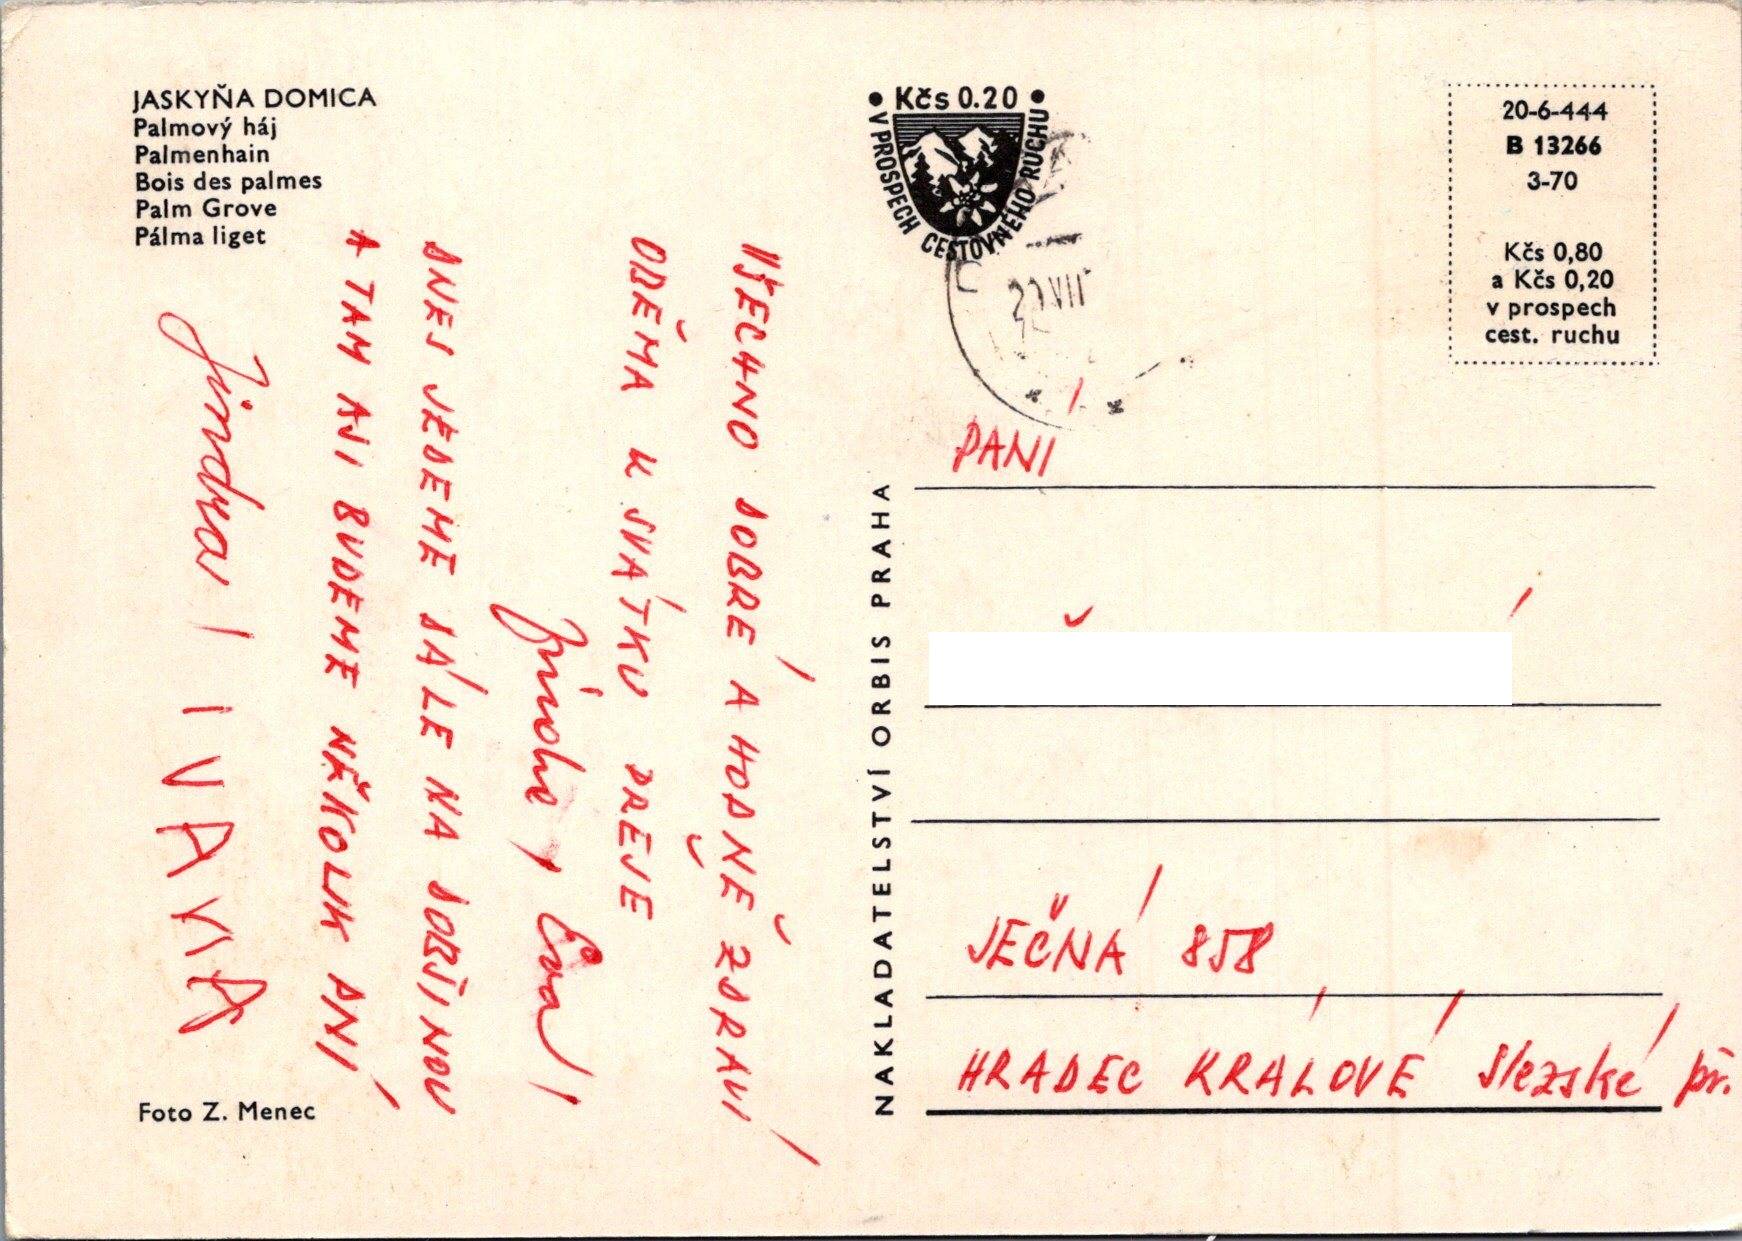 JASKYŇA DOMICA
Palmový háj
Palmenhain
Bois des palmes
Palm Grove
Pálma liget
VŠECHNO DOBRÉ A HODNĚ ZDRAVÍ
OBĚMA K SVÁTKU PŘEJE
Jindra, Eva,
DNES JEDEME DÁLE NA DOBŠINOU
A TAM ASI BUDEME NĚKOLIK DNÍ
Jindra I IVANA
Foto Z. Menec
NAKLADATELSTVÍ ORBIS PRAHA
Kčs 0.20
V PROSPECH CESTOVNÉHO RUCHU
VII
20-6-444
B 13266
3-70
Kčs 0,80
a Kčs 0,20
v prospech
cest. ruchu
PANÍ
JEČNÁ 858
HRADEC KRÁLOVÉ Slezské př.